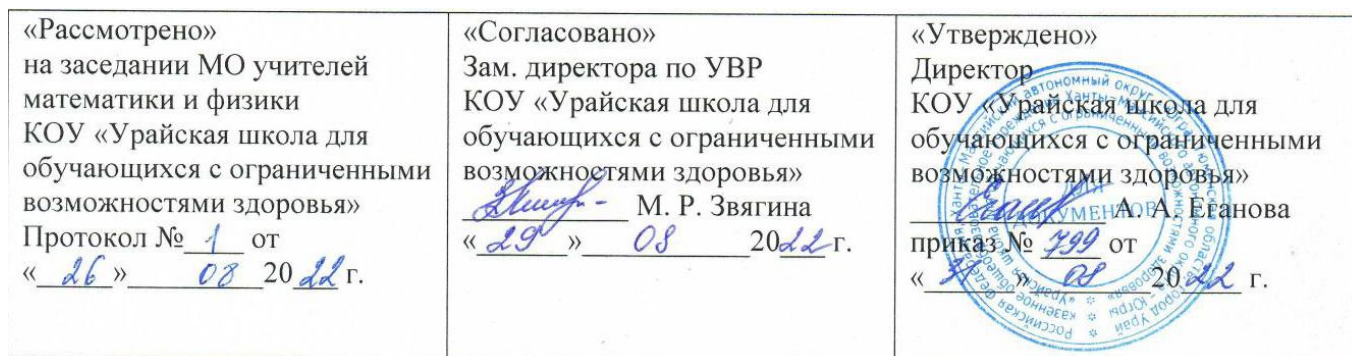 «Рассмотрено»
на заседании МО учителей
математики и физики
КОУ «Урайская школа для
обучающихся с ограниченными
возможностями здоровья»
Протокол № 1 от
« 26 » 08 20 22 г.
«Согласовано»
Зам. директора по УВР
КОУ «Урайская школа для
обучающихся с ограниченными
возможностями здоровья»
М. Р. Звягина
« 29 » 08 20 22 г.
«Утверждено»
Директор
КОУ «Урайская школа для
обучающихся с ограниченными
возможностями здоровья»
А. А. Еганова
приказ № 799 от
« 31 » 08 20 22 г.
ДЛЯ
ДОКУМЕНТОВ